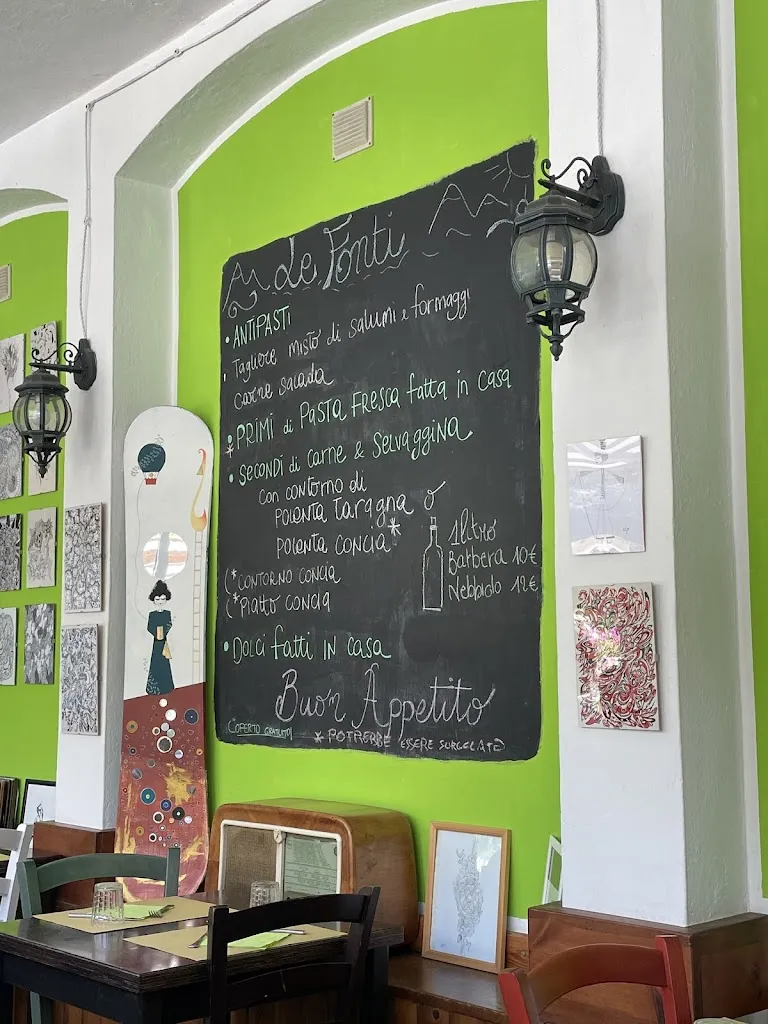 Le Fonti
• ANTIPASTI
• Tagliere misto di salumi e formaggi
Carne salada
• PRIMI di PASTA FRESCA fatta in casa
*
• SECONDI di carne & SELVAGGINA
con contorno di
POLENTA taragna o
POLENTA CONCIA*
(*CONTORNO CONCIA
(*PIATTO CONCIA
1 litro
Barbera 10€
Nebbiolo 12€
• DOLCI fatti IN casa
Buon Appetito
COPERTO GRATUITO!
* POTREBBE ESSERE SURGELATO